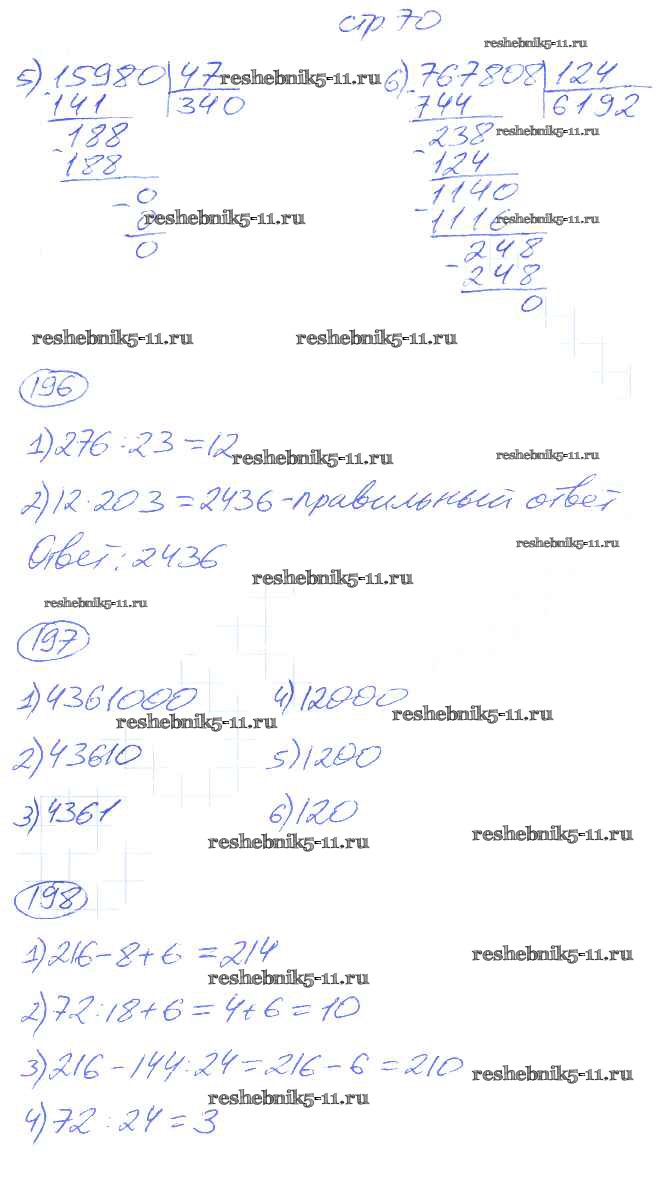 стр 70
reshebnik5-11.ru
5) 15980 | 47 reshebnik5-11.ru 6) 767808 | 124
141 340 744 6192
188 238 reshebnik5-11.ru
- 188 - 124
0 1140
- 0 reshebnik5-11.ru - 1116 reshebnik5-11.ru
0 248
- 248
0
reshebnik5-11.ru reshebnik5-11.ru
196
1) 276 : 23 = 12 reshebnik5-11.ru reshebnik5-11.ru
2) 12 · 203 = 2436 - правильный ответ
Ответ: 2436 reshebnik5-11.ru
reshebnik5-11.ru
reshebnik5-11.ru
197
1) 4361000 4) 12000
reshebnik5-11.ru reshebnik5-11.ru
2) 43610 5) 1200
3) 4361 6) 120
reshebnik5-11.ru reshebnik5-11.ru
198
1) 216 - 8 + 6 = 214 reshebnik5-11.ru
reshebnik5-11.ru
2) 72 : 18 + 6 = 4 + 6 = 10
3) 216 - 144 : 24 = 216 - 6 = 210 reshebnik5-11.ru
reshebnik5-11.ru
4) 72 : 24 = 3